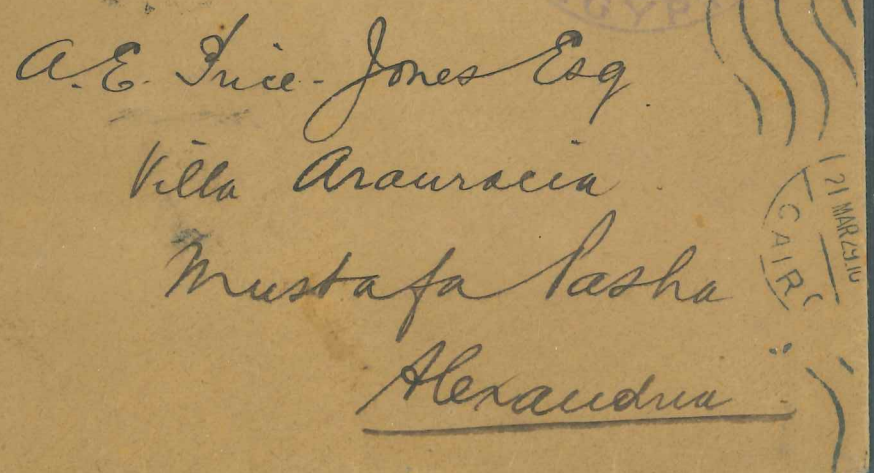 EGYP
A. E. Price-Jones Esq
Villa
Mustafa Pasha
Alexandria
21 MAR 29.10
CAIR